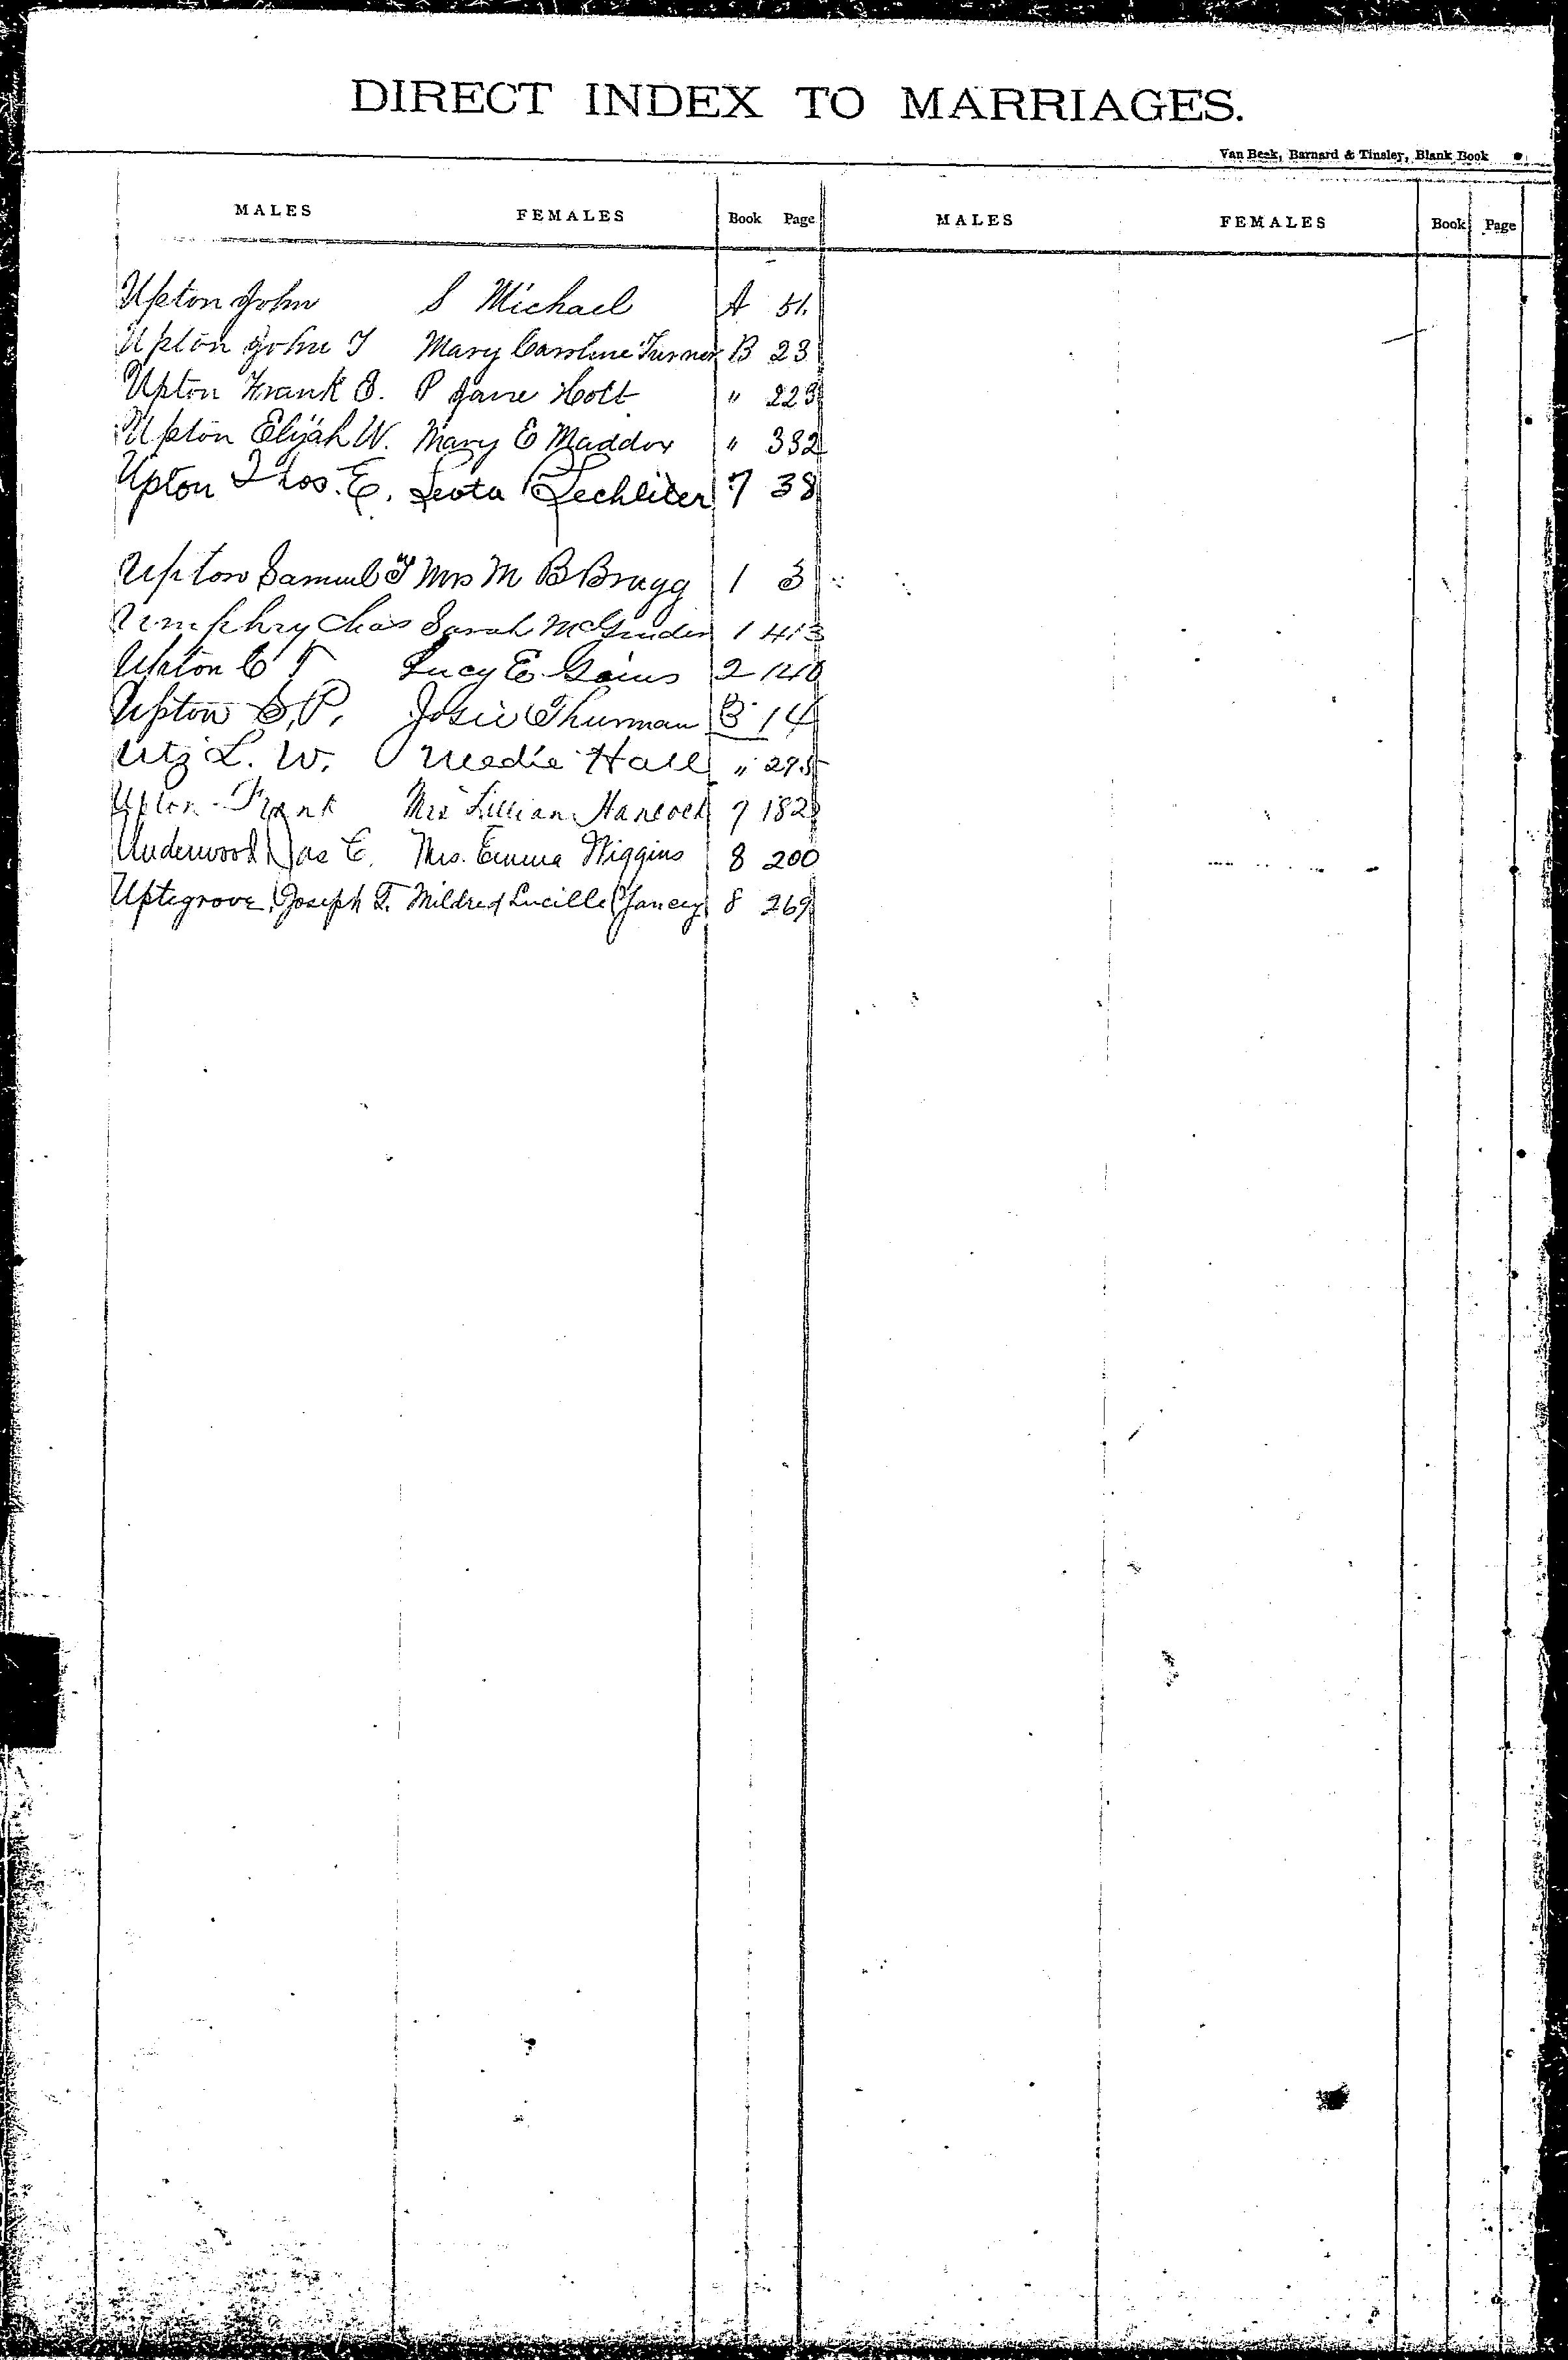 DIRECT INDEX TO MARRIAGES.
Van Beek, Barnard & Tinsley, Blank Book
MALES FEMALES Book Page MALES FEMALES Book Page
Upton John S Michael A 51
Upton John T Mary Caroline Turner B 23
Upton Frank E. P Jane Holt " 223
Upton Elijah W. Mary E Maddox " 332
Upton Thos. E. Leota Lechliter 7 38
Upton Samuel T Mrs M B Bragg 1 3
Umphry Chas Sarah 1 413
Upton C T Lucy E Gains 2 140
Upton S. P. Josie Thurman 3 14
Utz L. W. Medie Hall " 295
Upton Frank Mrs Lillian Hancock 7 182
Underwood Jas E. Mrs. Emma Wiggins 8 200
Uptegrove, Joseph T. Mildred Lucille Yancey 8 269